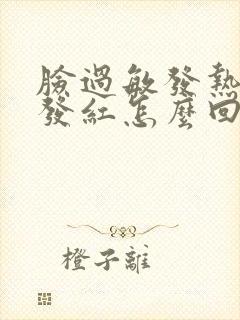 臉過敏發熱
發紅怎麼回
橙子離